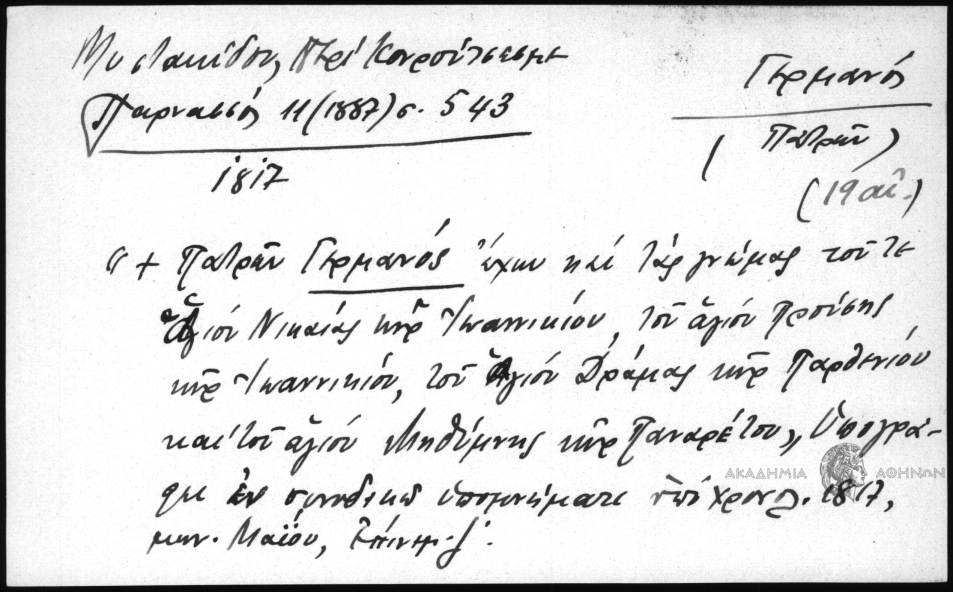 Μυστακίδου, Περί Κουρούτσεσμε
Παρνασσός 11 (1887) σ. 543
1817
Γερμανός
(Πατρῶν)
(19 αἰ.)
"+ Πατρῶν Γερμανός ἔχων καί τάς γνώμας τοῦ τε
ἁγίου Νικαίας κυρ Ἰωαννικίου, τοῦ ἁγίου Προύσης
κυρ Ἰωαννικίου, τοῦ ἁγίου Δράμας κυρ Παρθενίου
καί τοῦ ἁγίου Μηθύμνης κυρ Παναρέτου", Ὑπογρά-
φει ἐν συνοδικῷ ὑπομνήματι ὑπό χρονολ. 1817,
μην. Μαΐου, Ἐπινεμ.
ΑΚΑΔΗΜΙΑ ΑΘΗΝΩΝ